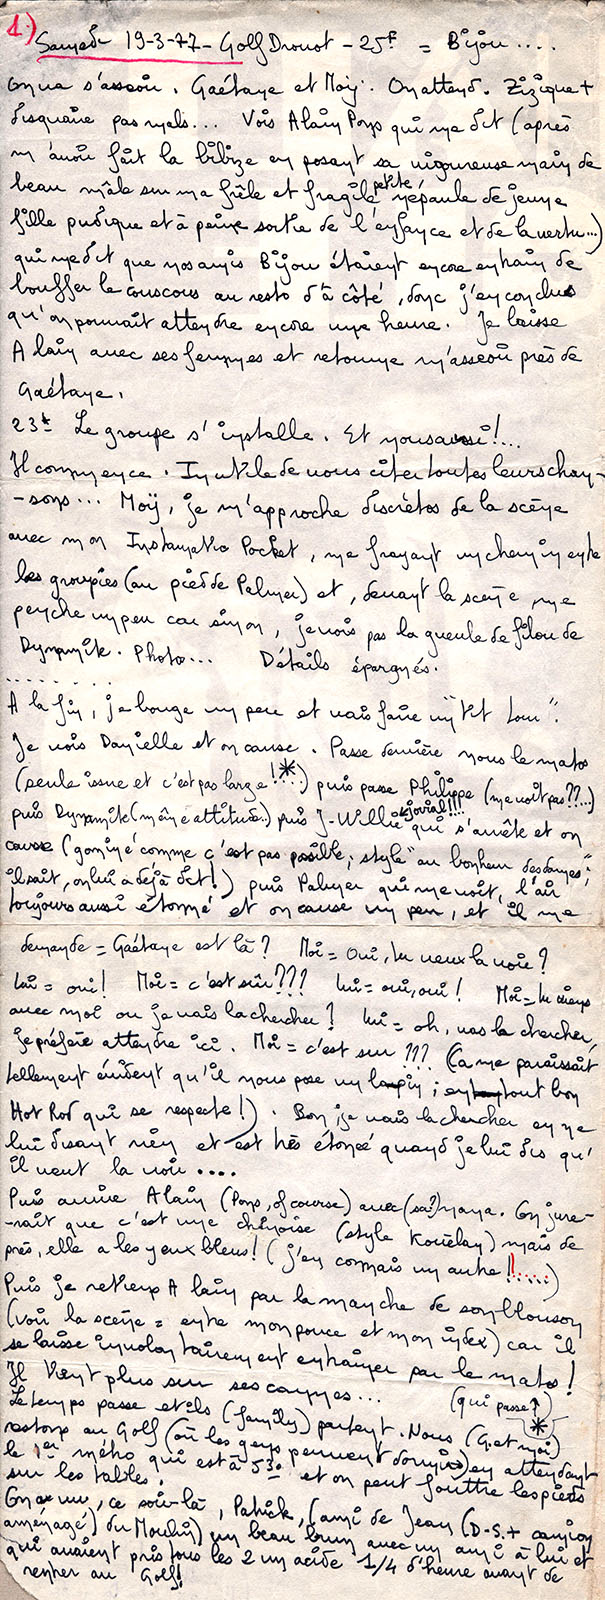 1)
Samedi 19-3-77 - Golf Drouot - 25F = Bijou....
on va s'asseoir. Gaétane et Moi. On attend. Zizique +
disquaire pas mals... Vois Alain Pons qui me dit (après
m'avoir fait la bibize en posant sa vigoureuse main de
beau mâle sur ma frêle et fragile petite népaule de jeune
fille pudique et à peine sortie de l'enfance et de la vertu...)
qui me dit que nos amis Bijou étaient encore en train de
bouffer le couscous au resto d'à côté, donc j'en conclus
qu'on pouvait attendre encore une heure. Je laisse
Alain avec ses femmes et retourne m'asseoir près de
Gaétane.
23h Le groupe s'installe. Et nous aussi!...
Il commence. Inutile de vous citer toutes leurs chan-
-sons... Moi, je m'approche discrètos de la scène
avec mon Instamatic Pocket, me frayant un chemin entre
les groupies (au pied de Palmer) et, devant la scène, me
penche un peu car sinon, je vois pas la gueule de filou de
Dynamite. Photo... Détails épargnés.
. . . . . . .
A la fin, je bouge un peu et vais faire un "tit tour".
Je vois Danielle et on cause. Passe derrière nous le matos
(seule issue et c'est pas large!*...) puis passe Philippe (me voit pas??...)
puis Dynamite (même attitude..) puis J-Willie jovial!!! qui s'arrête et on
cause (gominé comme c'est pas possible, style "au bonheur des dames";
il sait, on lui a déjà dit!) puis Palmer qui me voit, l'air
toujours aussi étonné et on cause un peu, et il me
demande = Gaétane est là? Moi = Oui, tu veux la voir?
Lui = oui! Moi = c'est sûr??? Lui = oui, oui! Moi = tu viens
avec moi ou je vais la chercher? Lui = oh, vas la chercher,
je préfère attendre ici. Moi = c'est sur??? (Ca me paraissait
tellement évident qu'il nous pose un lapin; en tout bon
Hot Rod qui se respecte!). Bon, je vais la chercher en ne
lui disant rien et est très étonée quand je lui dis qu'
il veut la voir....
Puis arrive Alain (Pons, of course) avec (sa?) nana. On jure-
-rait que c'est une chinoise (style Kouelay) mais de
près, elle a les yeux bleus! (j'en connais un autre!!.....)
Puis je retiens Alain par la manche de son blouson
(voir la scène = entre mon pouce et mon index) car il
se laisse involontairement entrainer par le matos!
Il tient plus sur ses cannes...
(qui passe ↑ *
Le temps passe et ils (family) partent. Nous (G. et moi)
restons au Golf (où les gens peuvent dormir) en attendant
le 1er métro qui est à 5 30 et on peut foutre les pieds
sur les tables.
On a vu, ce soir-là, Patrick, (ami de Jean (D-S. + camion
aménagé) du Moulin) un beau brun avec un ami à lui et
qui avaient pris tous les 2 un acide 1/4 d'heure avant de
rentrer au Golf!